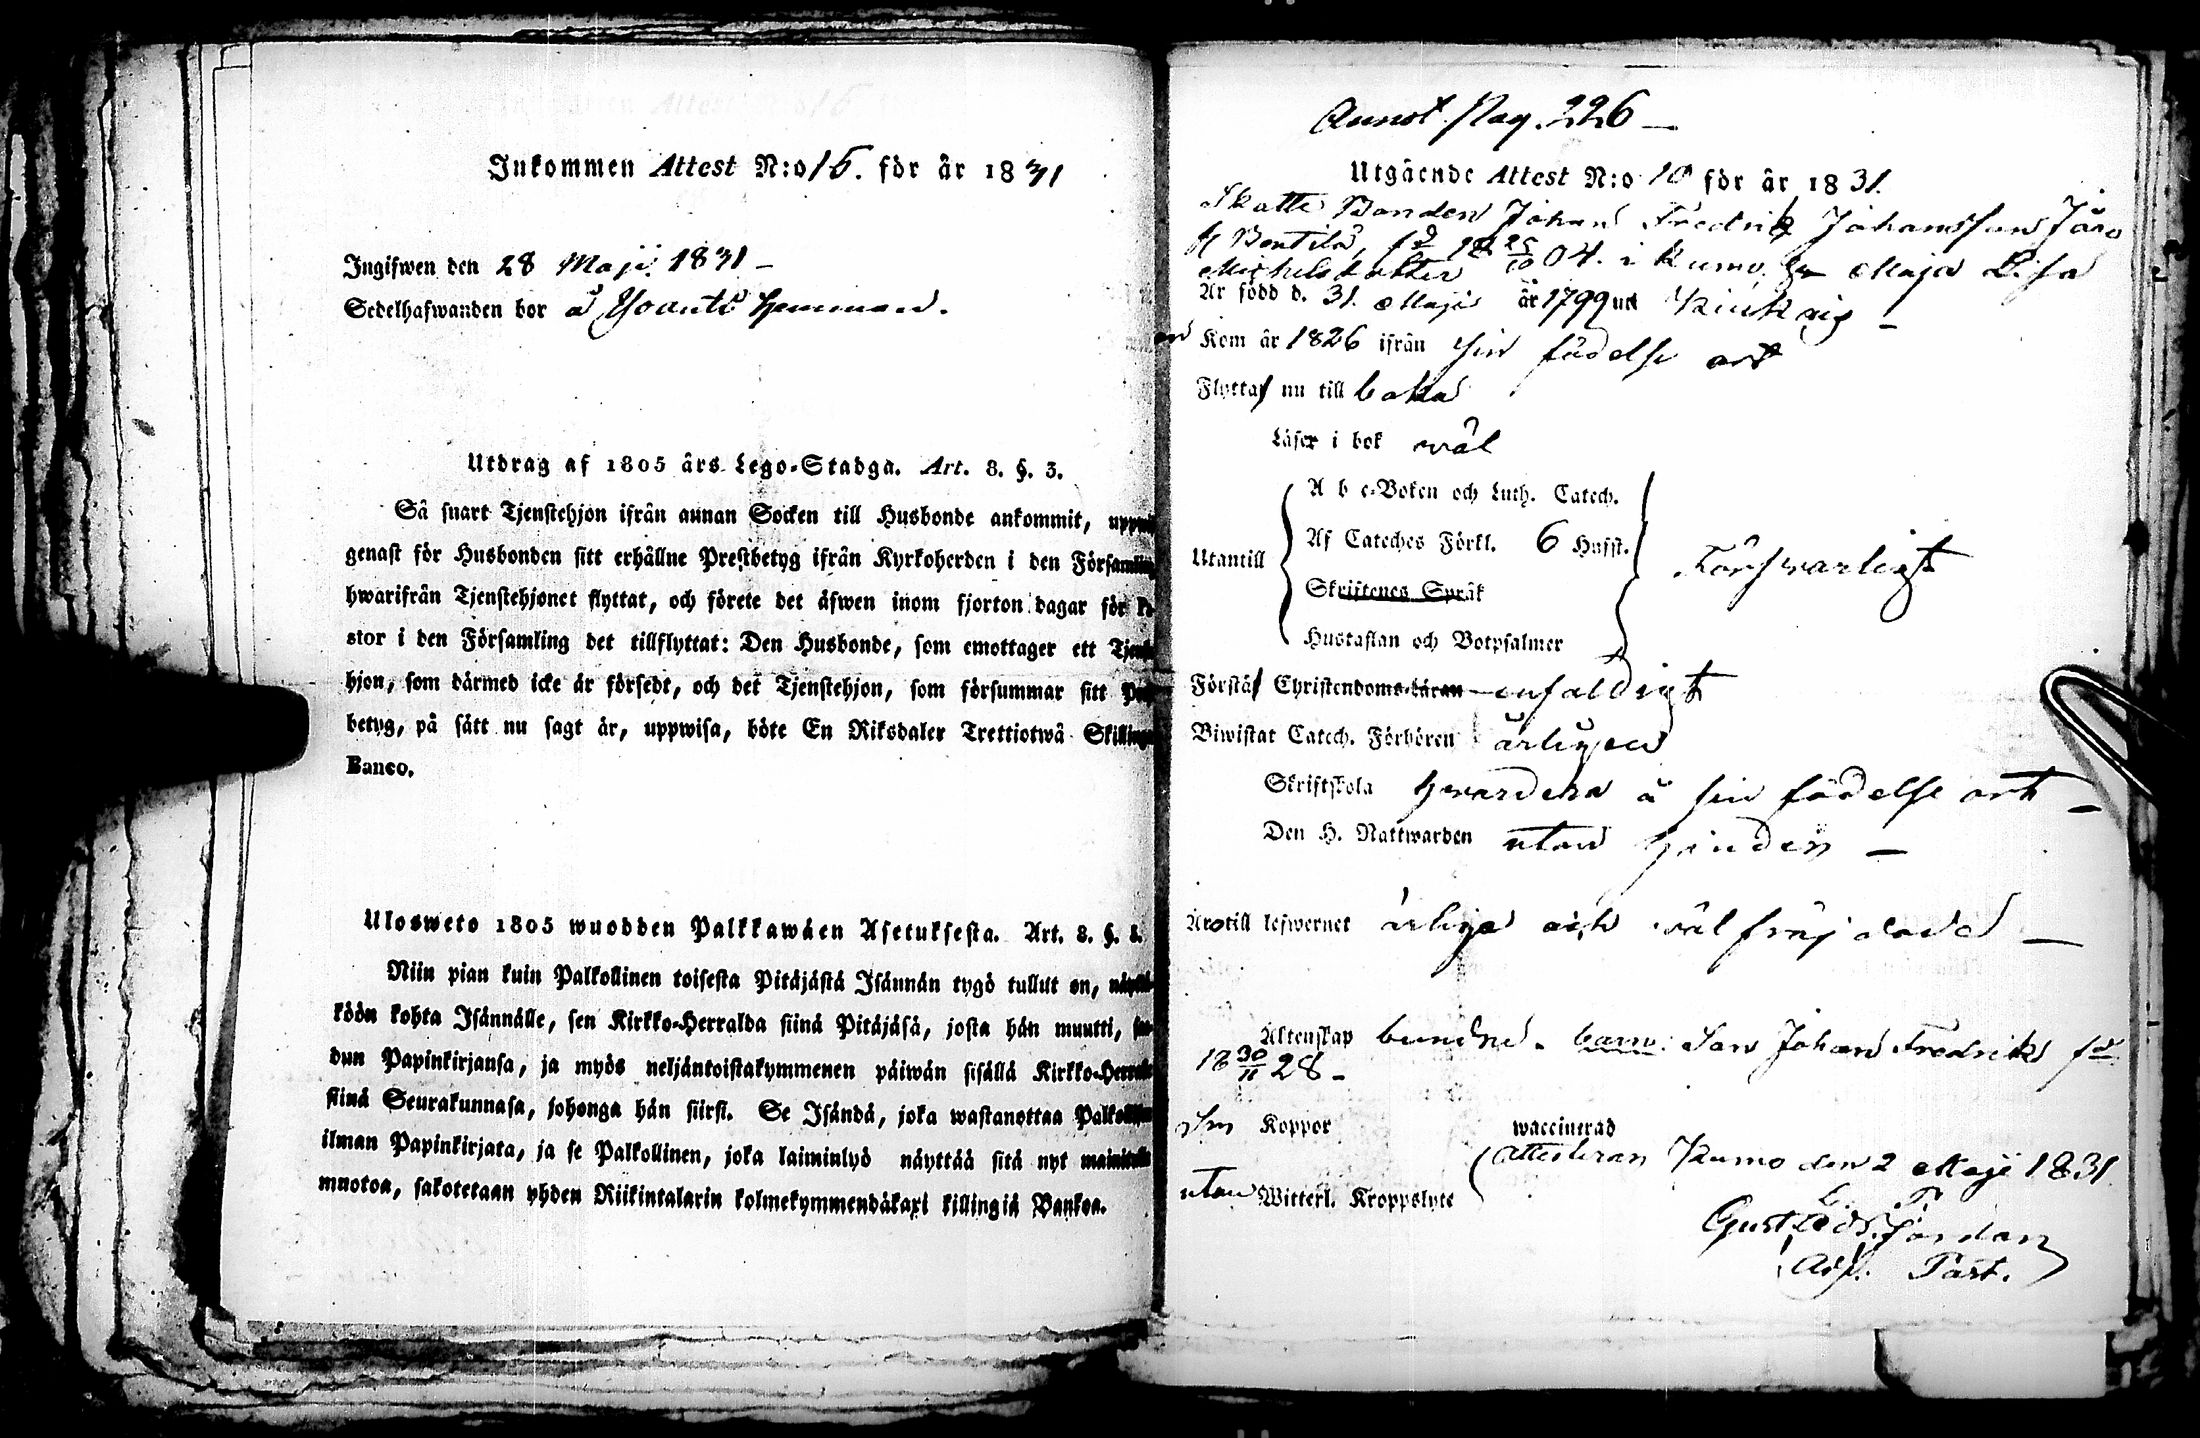 Inkommen Attest N:o 15. för år 1831
Ingifwen den 28 Maji 1831 –
Sedelhafwanden bor å hemman.
Utdrag af 1805 års Lego-Stadga. Art. 8. §. 3.
Så snart Tjenstehjon ifrån annan Socken till Husbonde ankommit,
genast för Husbonden sitt erhållne Prestbetyg ifrån Kyrkoherden i den Församling
hwarifrån Tjenstehjonet flyttat, och förete det äfwen inom fjorton dagar för
stor i den Församling det tillflyttat: Den Husbonde, som emottager ett Tjenste
hjon, som därmed icke är försedt, och det Tjenstehjon, som försummar sitt
betyg, på sätt nu sagt är, uppwisa, böte En Riksdaler Trettiotwå Skillingar
Banco.
Ulosweto 1805 wuodden Palkkawäen Asetuksesta. Art. 8. §. 3.
Niin pian kuin Palkollinen toisesta Pitäjästä Isännän tygö tullut on, näyttä-
köön kohta Isännälle, sen Kirkko-Herralda siinä Pitäjäsä, josta hän muutti, saa-
dun Papinkirjansa, ja myös neljäntoistakymmenen päiwän sisällä Kirkko-Herralle
siinä Seurakunnasa, johonga hän siirsi. Se Isändä, joka wastanottaa Palkollisen
ilman Papinkirjata, ja se Palkollinen, joka laiminlyö näyttää sitä nyt mainitulla
muotoa, sakotetaan yhden Riikintalarin kolmekymmendäkaxi killingiä Bankoa.
Annot. Pag. 226 –
Utgående Attest N:o 10 för år 1831.
Skatte Bonden Johan Fredrik Johansson
Bentilä, fd 18 25/10 04. i Kumo Maja Lisa
Michelsdotter
Är född d. 31. Maji år 1799 uti
Kom år 1826 ifrån sin födelse ort
Flytta nu till baka
Läser i bok wäl
Utantill
A b c-Boken och Luth. Catech.
Af Cateches Förkl. 6 Hufst.
Skriftenes Språk
Hustaflan och Botpsalmer
Förswarligt
Förstå Christendoms-Läran enfaldigt
Biwistat Catech. Förhören årligen
Skriftskola hwardera å sin födelse ort –
Den H. Nattwarden utan hinder –
Äro till lefwernet ärliga och wälfräjdade –
Äktenskap bundne. barn: Son Johan Fredrik fd
18 30/11 28 –
Koppor
waccinerad
utan Witterl. Kroppslyte
Attesteran Kumo den 2 Maji 1831.
Gust. Jordan
Adj. Past.